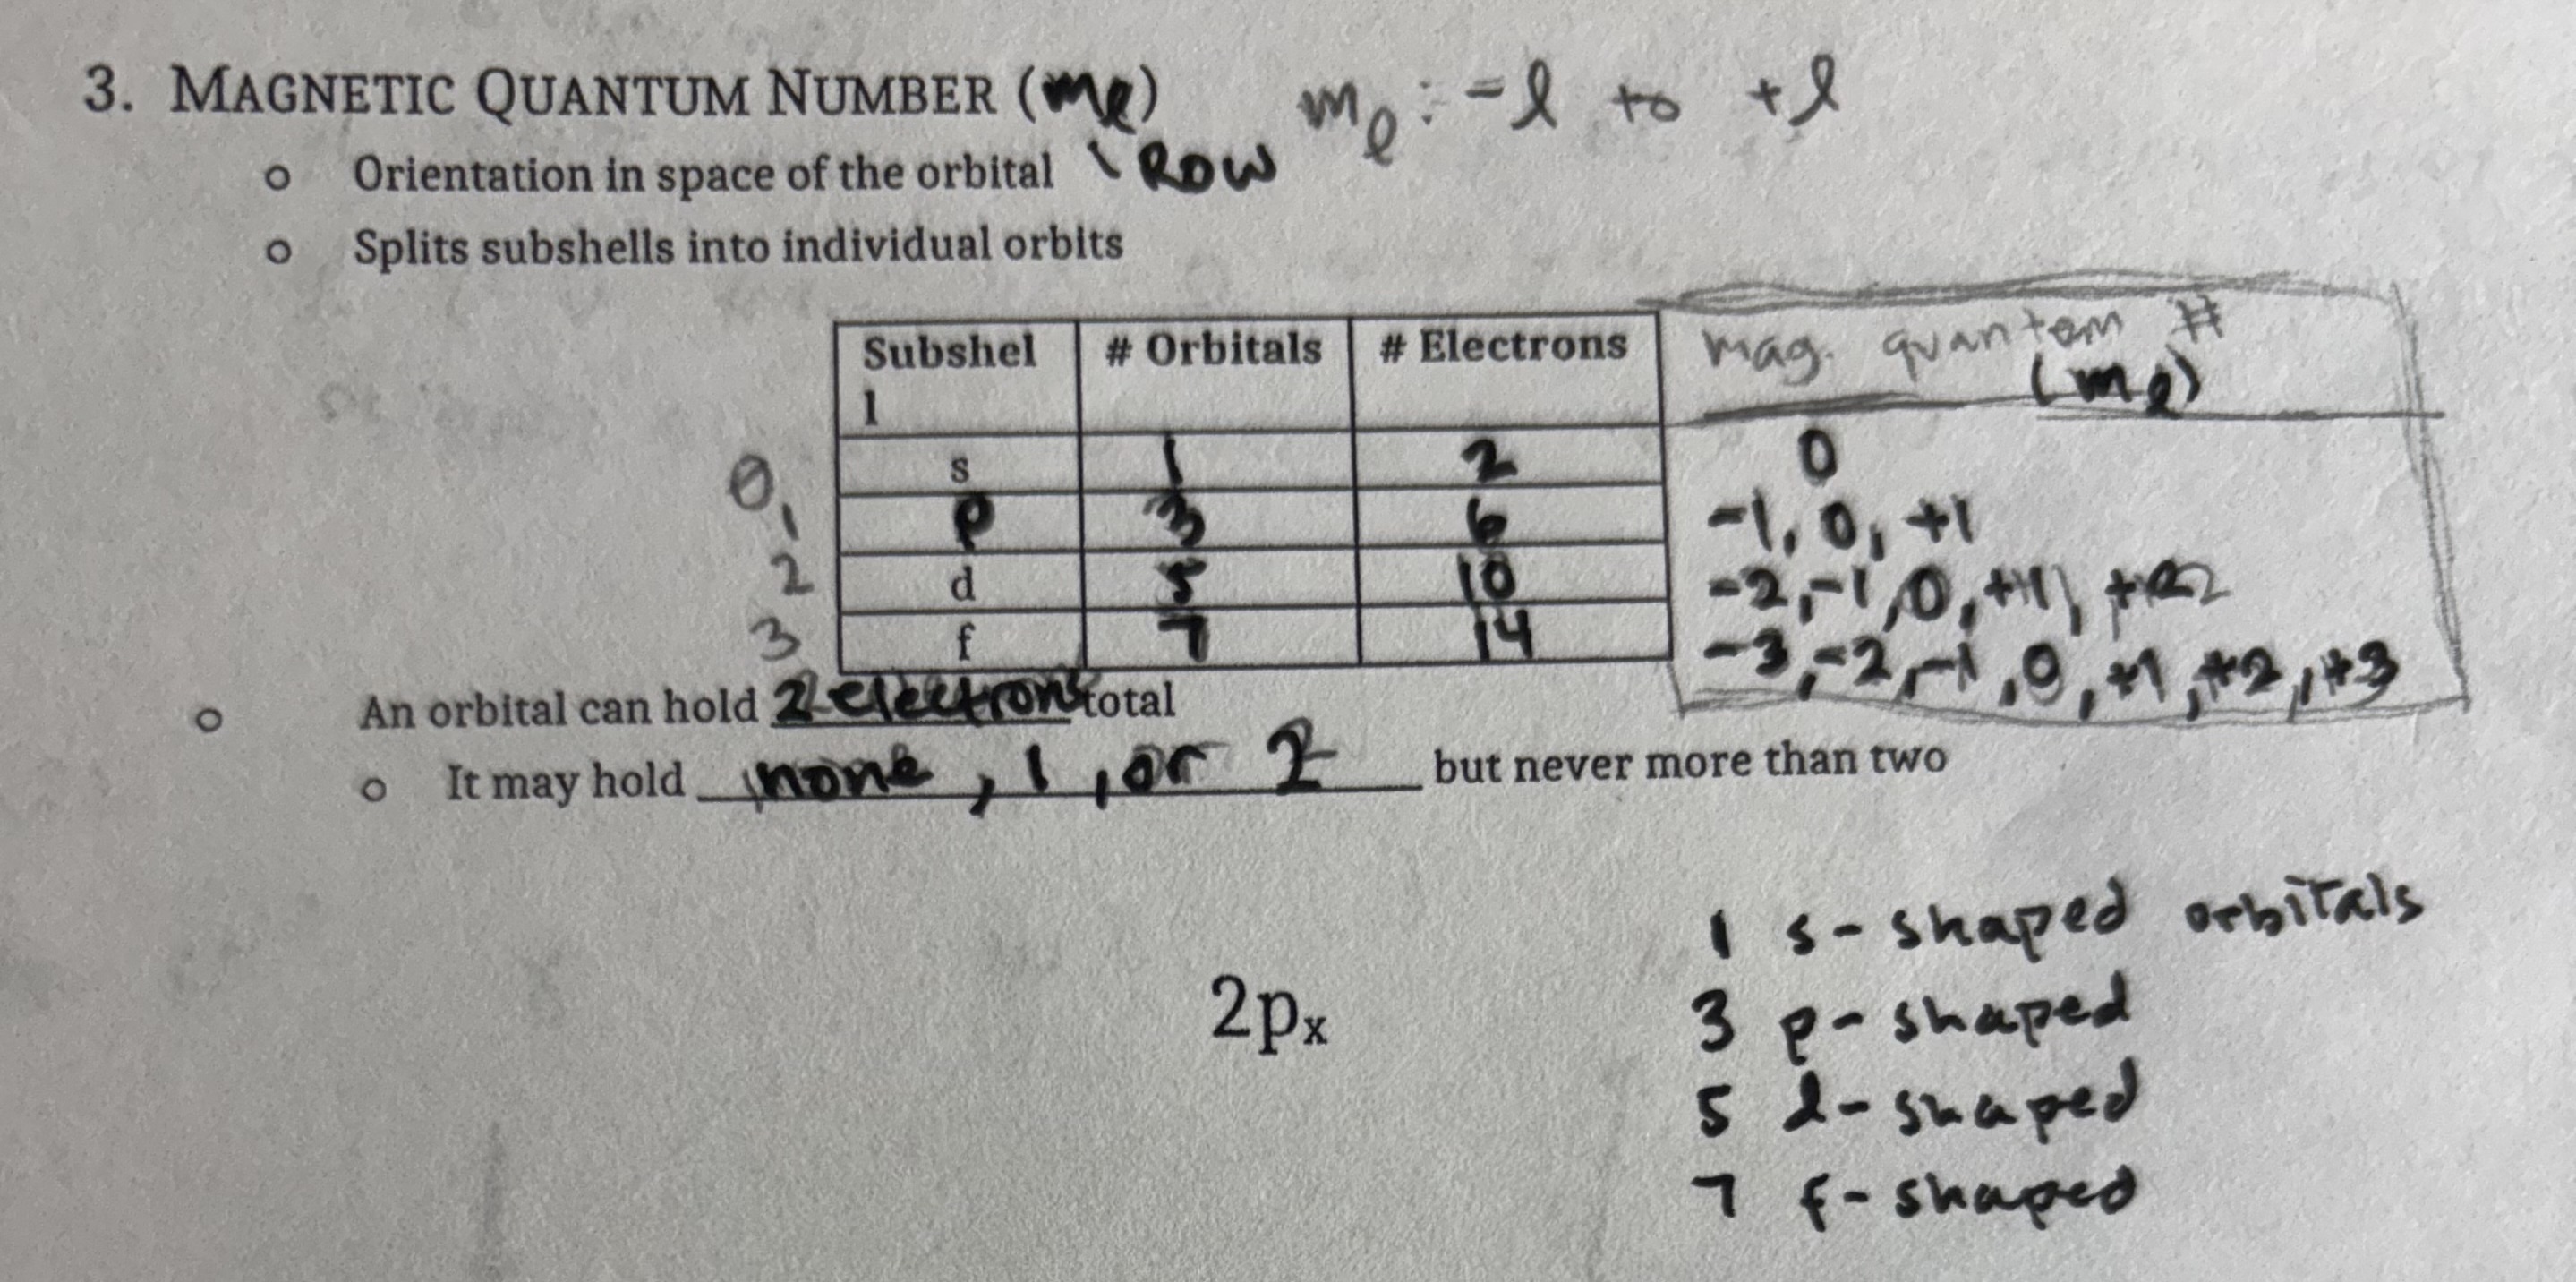 3. MAGNETIC QUANTUM NUMBER (mℓ) mℓ: -ℓ to +ℓ
o Orientation in space of the orbital \ Row
o Splits subshells into individual orbits
Subshel # Orbitals # Electrons mag. quantem #
l (mℓ)
0, s 1 2 0
1 p 3 6 -1, 0, +1
2 d 5 10 -2, -1, 0, +1, +2
3 f 7 14 -3, -2, -1, 0, +1, +2, +3
o An orbital can hold 2 electrons total
o It may hold none, 1, or 2 but never more than two
1 s-shaped orbitals
2pₓ
3 p-shaped
5 d-shaped
7 f-shaped